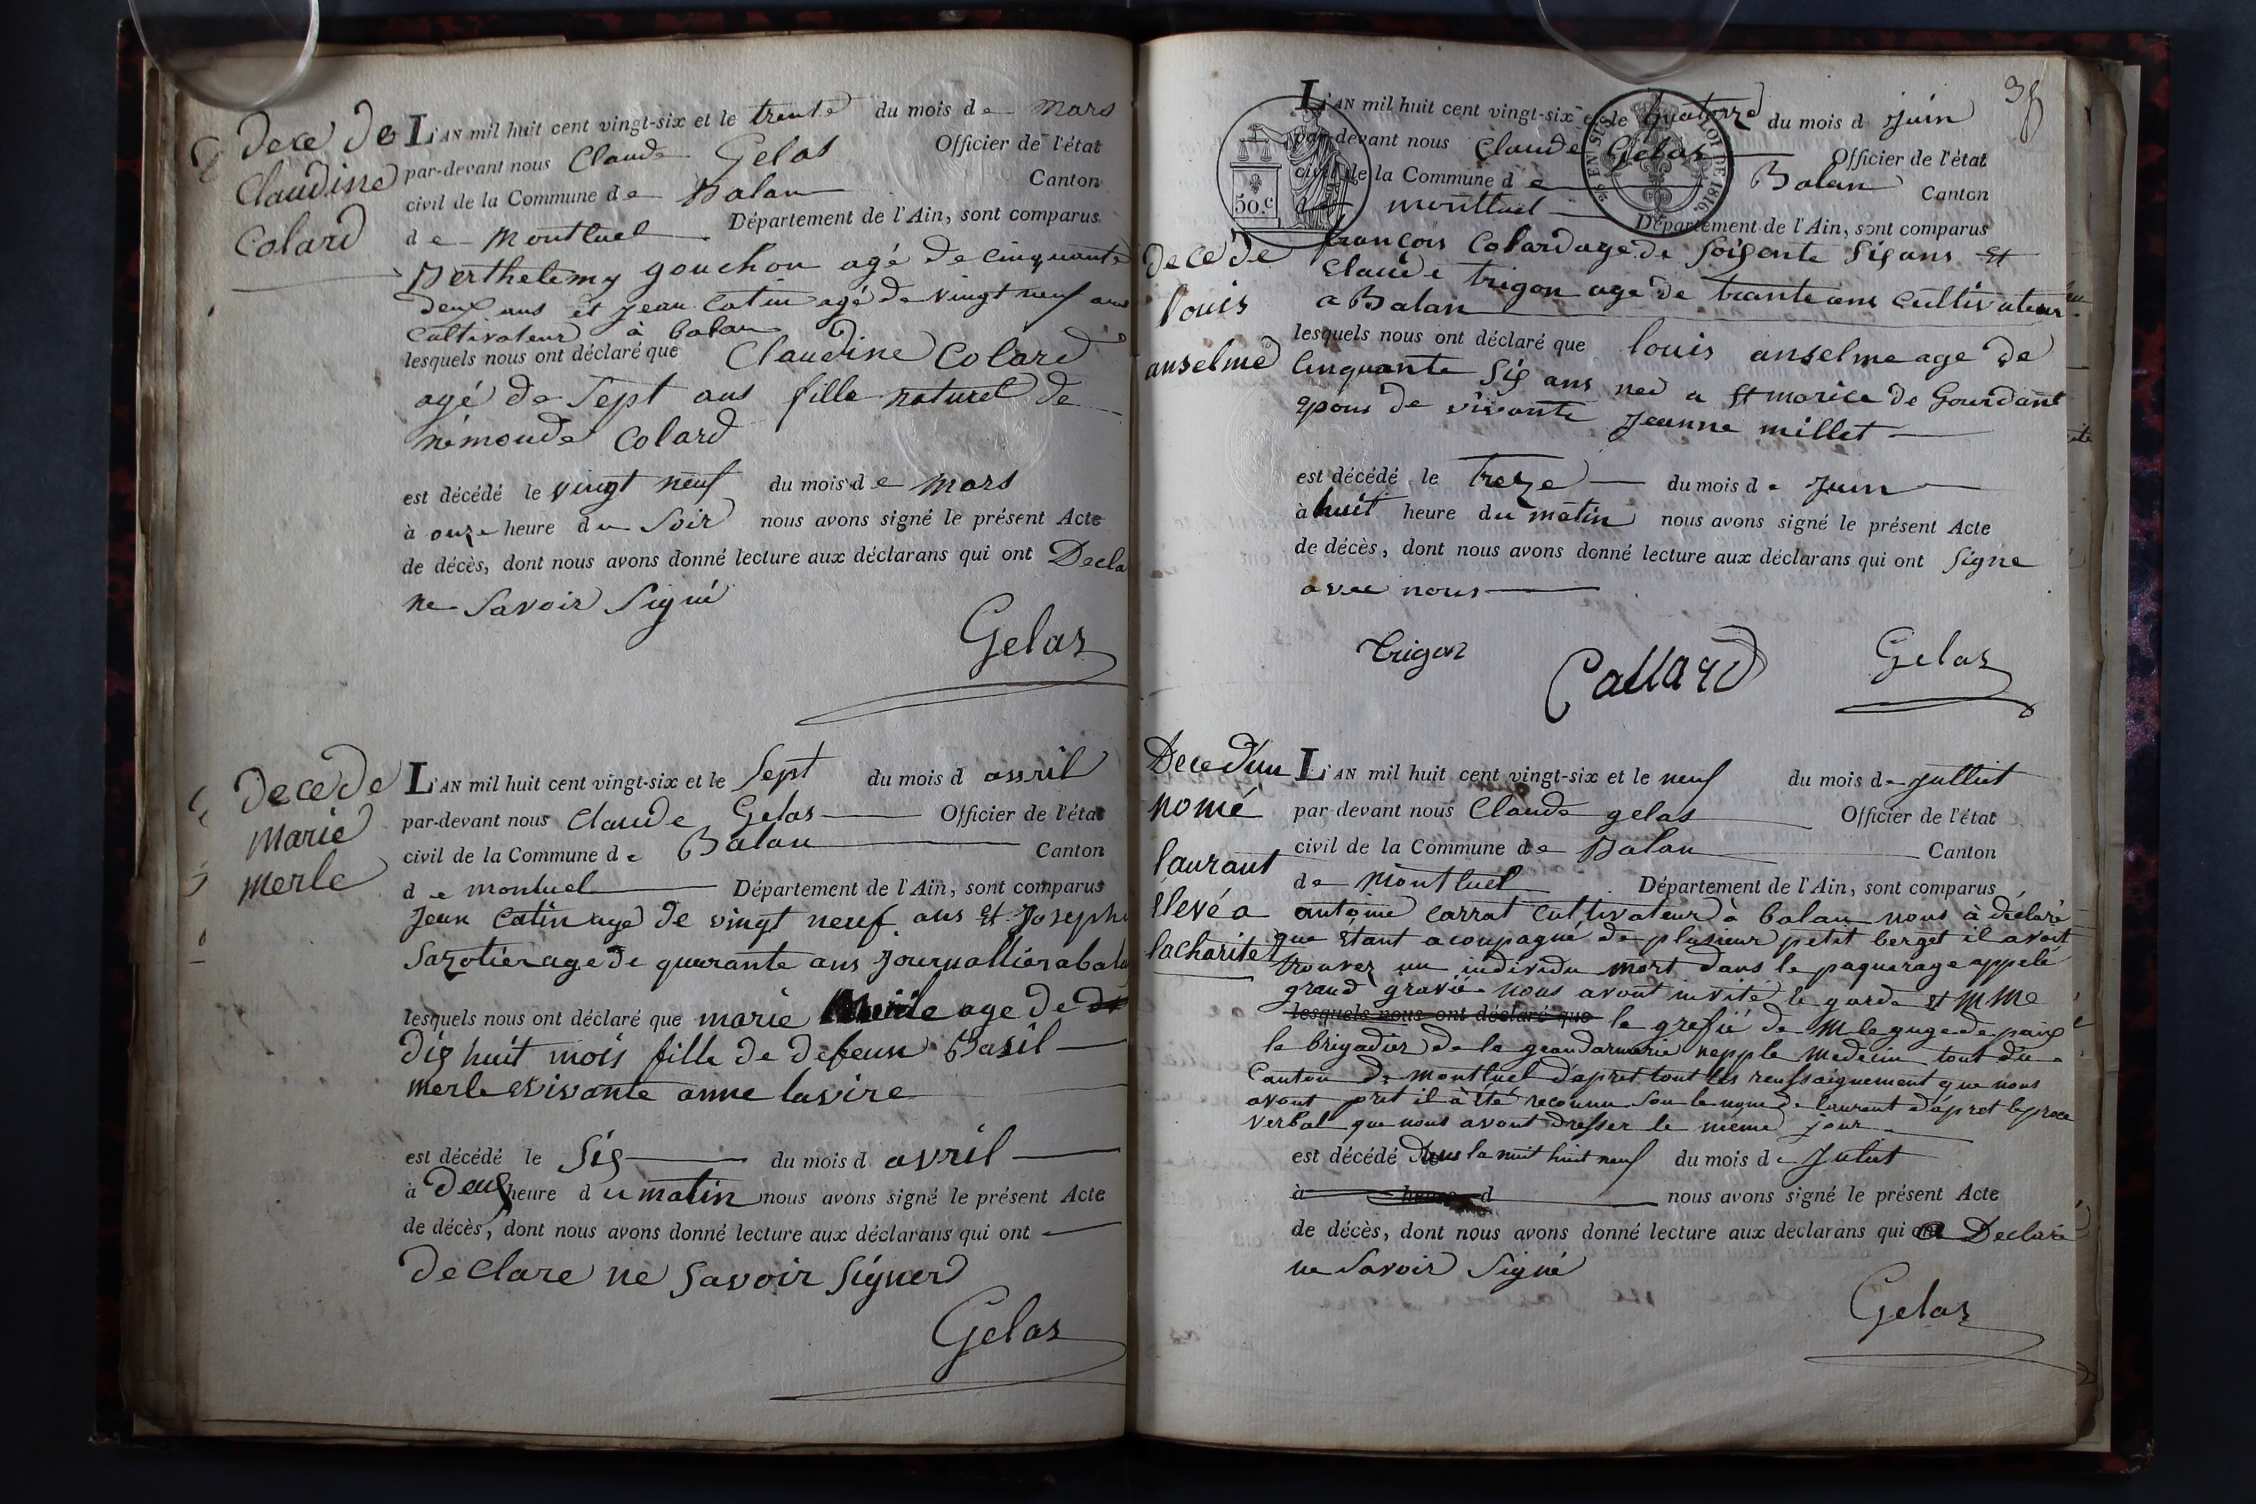 Dece de
Claudine
Colard
L'AN mil huit cent vingt-six et le trente du mois de mars
par-devant nous Claude Gelas Officier de l'état
civil de la Commune de Balan Canton
de Montluel Département de l'Ain, sont comparus
Berthelemy gouchon agé de cinquante
deux ans et jean Catin agé de vingt neuf ans
Cultivateur à balan
lesquels nous ont déclaré que Claudine Colard
agé de Sept ans fille naturel de
némonde Colard
est décédé le vingt neuf du mois de mars
à onze heure du Soir nous avons signé le présent Acte
de décès, dont nous avons donné lecture aux déclarans qui ont Decla
ne Savoir Signé
Gelas
Dece de
marie
merle
L'AN mil huit cent vingt-six et le Sept du mois d avril
par-devant nous Claude Gelas Officier de l'état
civil de la Commune de Balan Canton
de montuel Département de l'Ain, sont comparus
Jean Catin age de vingt neuf ans Et Joseph
Sazotier age de quarante ans journallier a bala
lesquels nous ont déclaré que marie Merle age de
dis huit mois fille de defeun Basil
merle et vivante anne lavire
est décédé le Sis du mois d avril
à Deux heure du matin nous avons signé le présent Acte
de décès, dont nous avons donné lecture aux déclarans qui ont
declare ne Savoir Signer
Gelas
38
50.c
LOI DE 1816.
Dece de
louis
anselme
L'AN mil huit cent vingt-six et le quatorze du mois d Juin
par-devant nous Claude Gelas Officier de l'état
civil de la Commune de Balan Canton
de montluel Département de l'Ain, sont comparus
francois Colard age de Soisante Sis ans Et
Claude trigon age de trante ans Cultivateur
a Balan
lesquels nous ont déclaré que louis anselme age de
Cinquante Sis ans ned a St morice de Gourdant
epous de vivante Jeanne millet
est décédé le Treze du mois de Juin
à huit heure du matin nous avons signé le présent Acte
de décès, dont nous avons donné lecture aux déclarans qui ont Signe
avec nous
Trigon Collard Gelas
Dece d'un
nomé
laurant
Elevé a
lacharite
L'AN mil huit cent vingt-six et le neuf du mois de Julliet
par-devant nous Claude gelas Officier de l'état
civil de la Commune de Balan Canton
de Montluel Département de l'Ain, sont comparus
antoine carrat cultivateur à balan nous à déclaré
que Etant acoupagné de plusieur petit berget il avoit
trouver un individu mort dans le paquerage appelé
grand gravié nous avont invité le garde et Mme
lesquels nous ont déclaré que le grefié de M le guge de paux
le brigadier de la geandarmerie nepple Medecin tout du
Canton de Montluel d'apret tout les renssaignement que nous
avont pret il à été reconnu Sou le nom de laurent d'apret le proce
verbal que nous avont dresser le meme jour
est décédé Dans la nuit huit neuf du mois de Juliet
à heure d nous avons signé le présent Acte
de décès, dont nous avons donné lecture aux déclarans qui a Declaré
ne Savoir Signé
Gelas